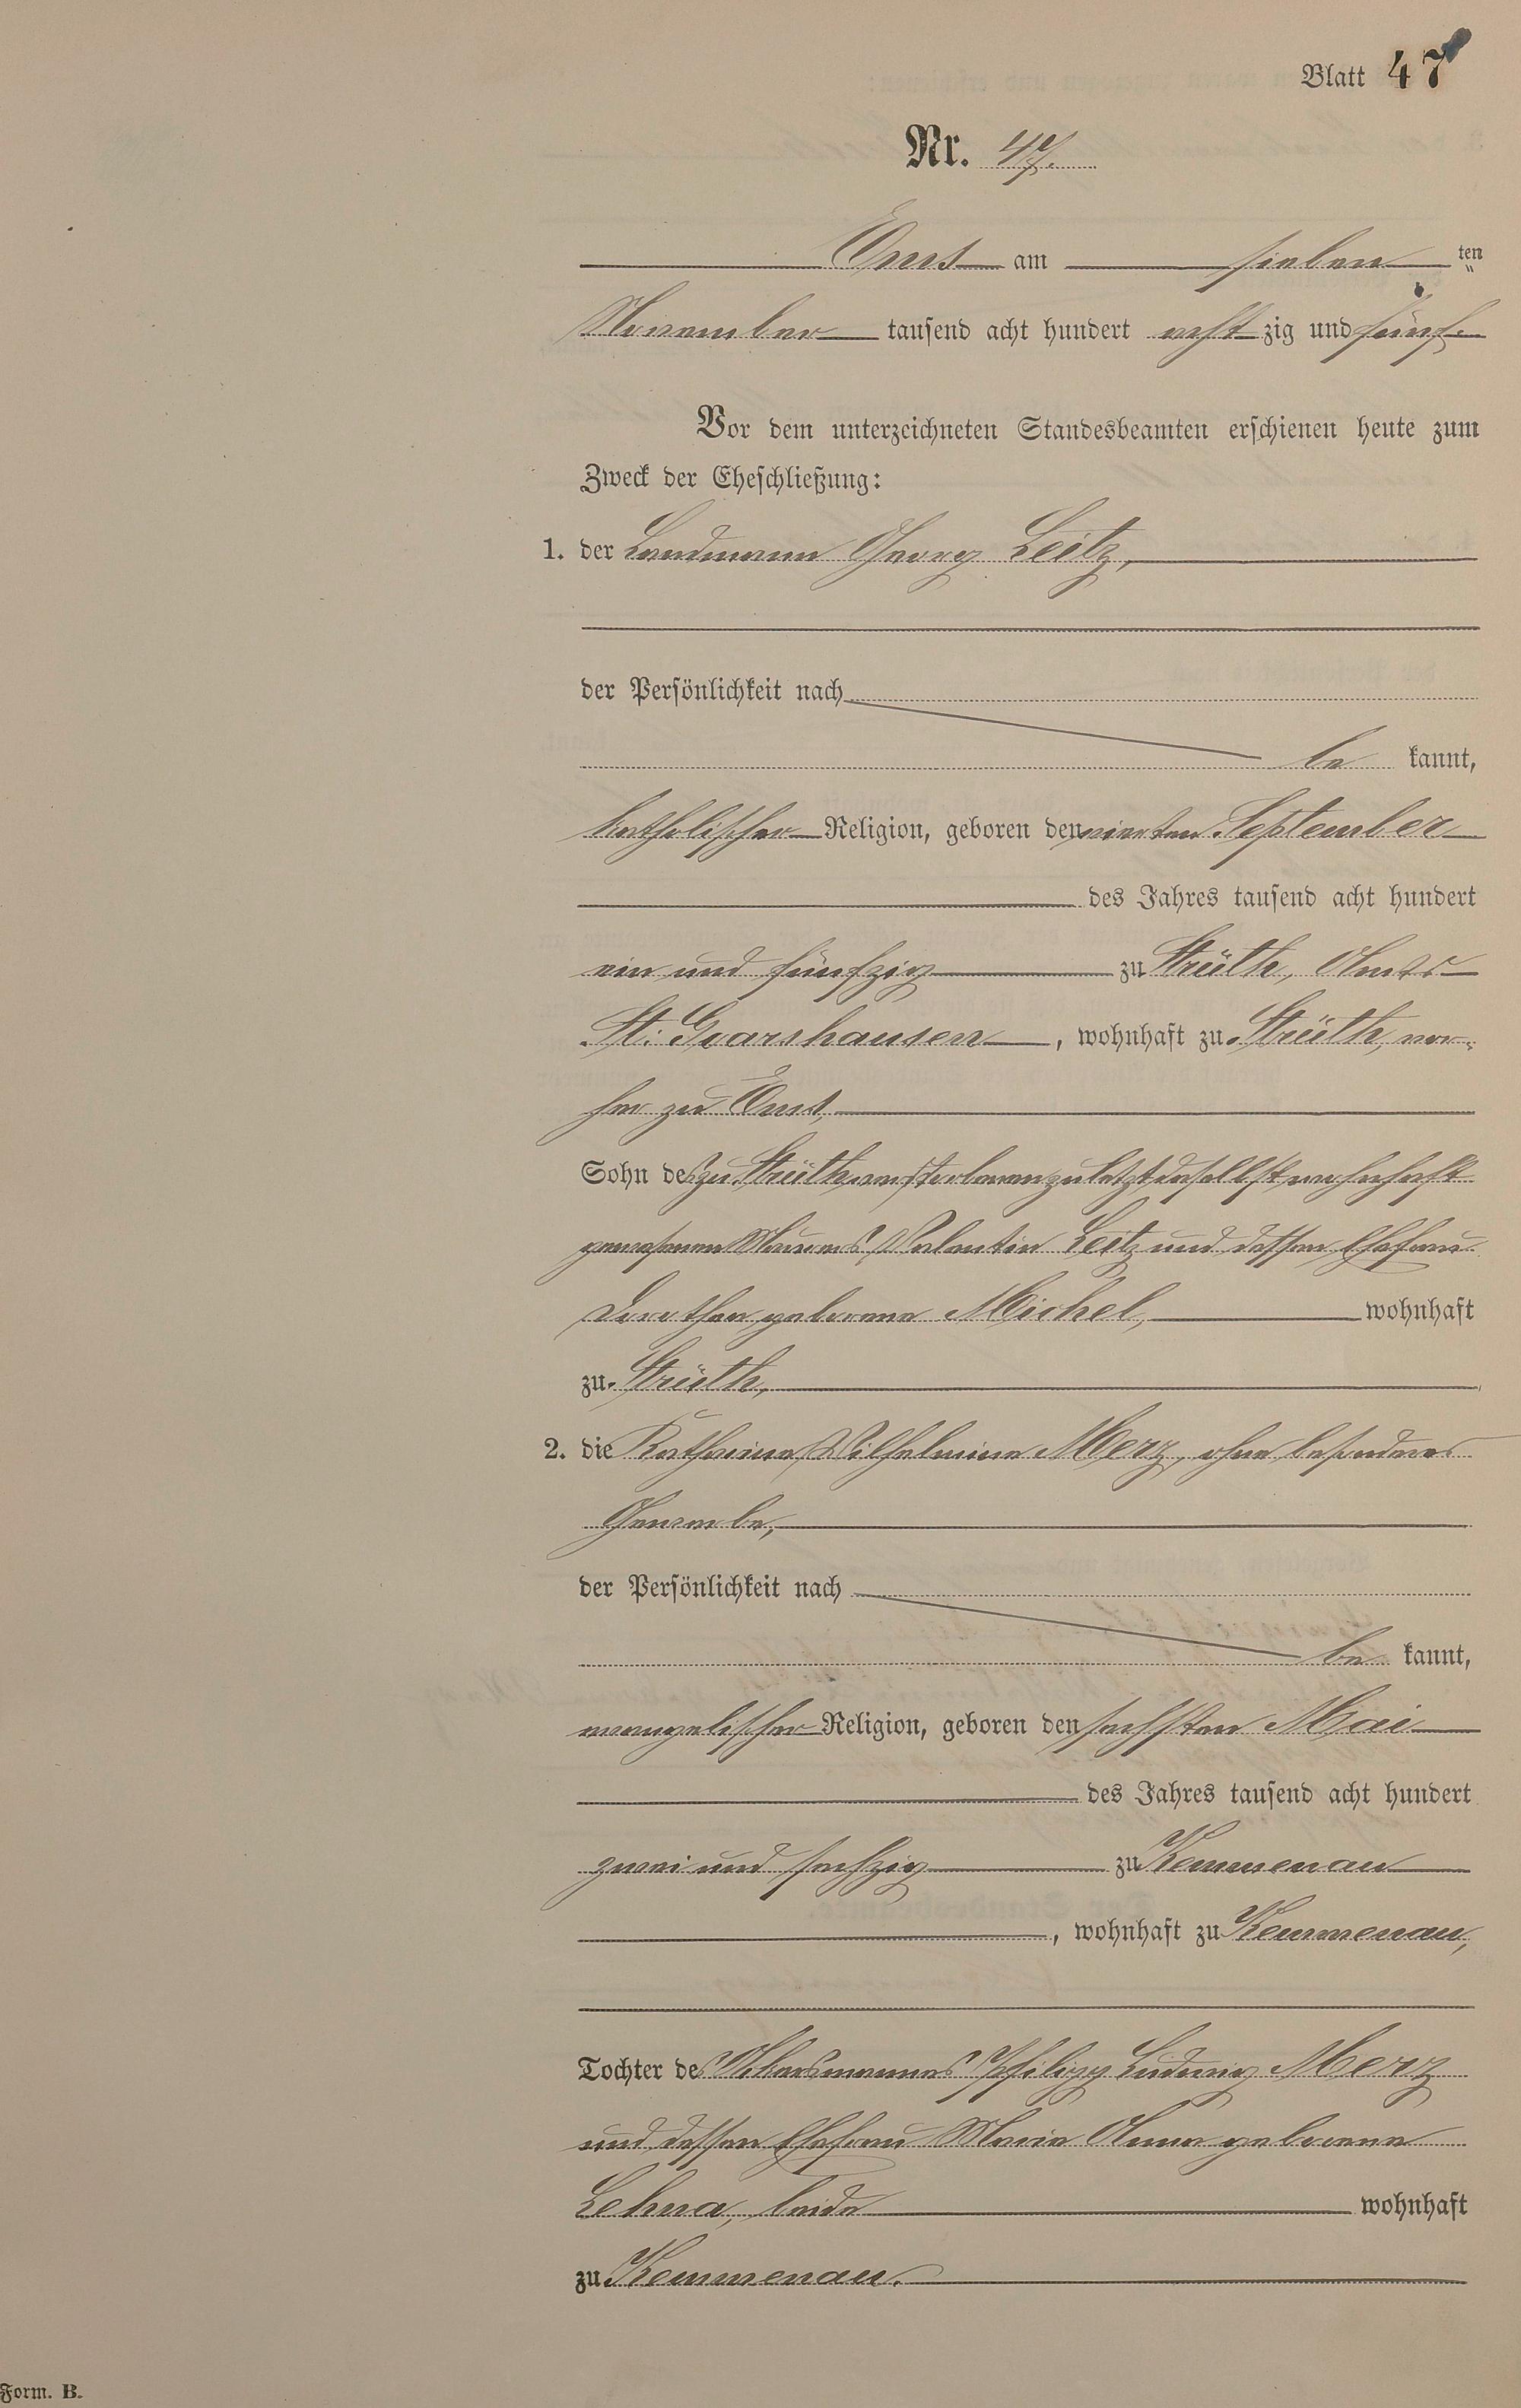 Blatt 47
Nr. 47.
Ems am sieben ten
November tausend acht hundert acht zig und fünf.
Vor dem unterzeichneten Standesbeamten erschienen heute zum
Zweck der Eheschließung:
1. der Landmann Georg Leitz,
der Persönlichkeit nach
be kannt,
katholischer Religion, geboren den vierten September
des Jahres tausend acht hundert
ein und fünfzig zu Strüth, Amts
St. Goarshausen, wohnhaft zu Strüth, vor-
her zu Ems,
Sohn des zu Strüth verstorbenen zuletzt daselbst wohnhaft
gewesenen Maurers Valentin Leitz und dessen Ehefrau
Dorothea, geborene Michel, wohnhaft
zu Strüth,
2. die Katharine Wilhelmine Merz, ohne besonderes
Gewerbe,
der Persönlichkeit nach
be kannt,
evangelischer Religion, geboren den sechsten Mai
des Jahres tausend acht hundert
zwei und sechzig zu Kemmenau
, wohnhaft zu Kemmenau,
Tochter des Ackersmannes Philipp Ludwig Merz
und dessen Ehefrau Marie Anna geborene
Lehna, beide wohnhaft
zu Kemmenau.
Form. B.